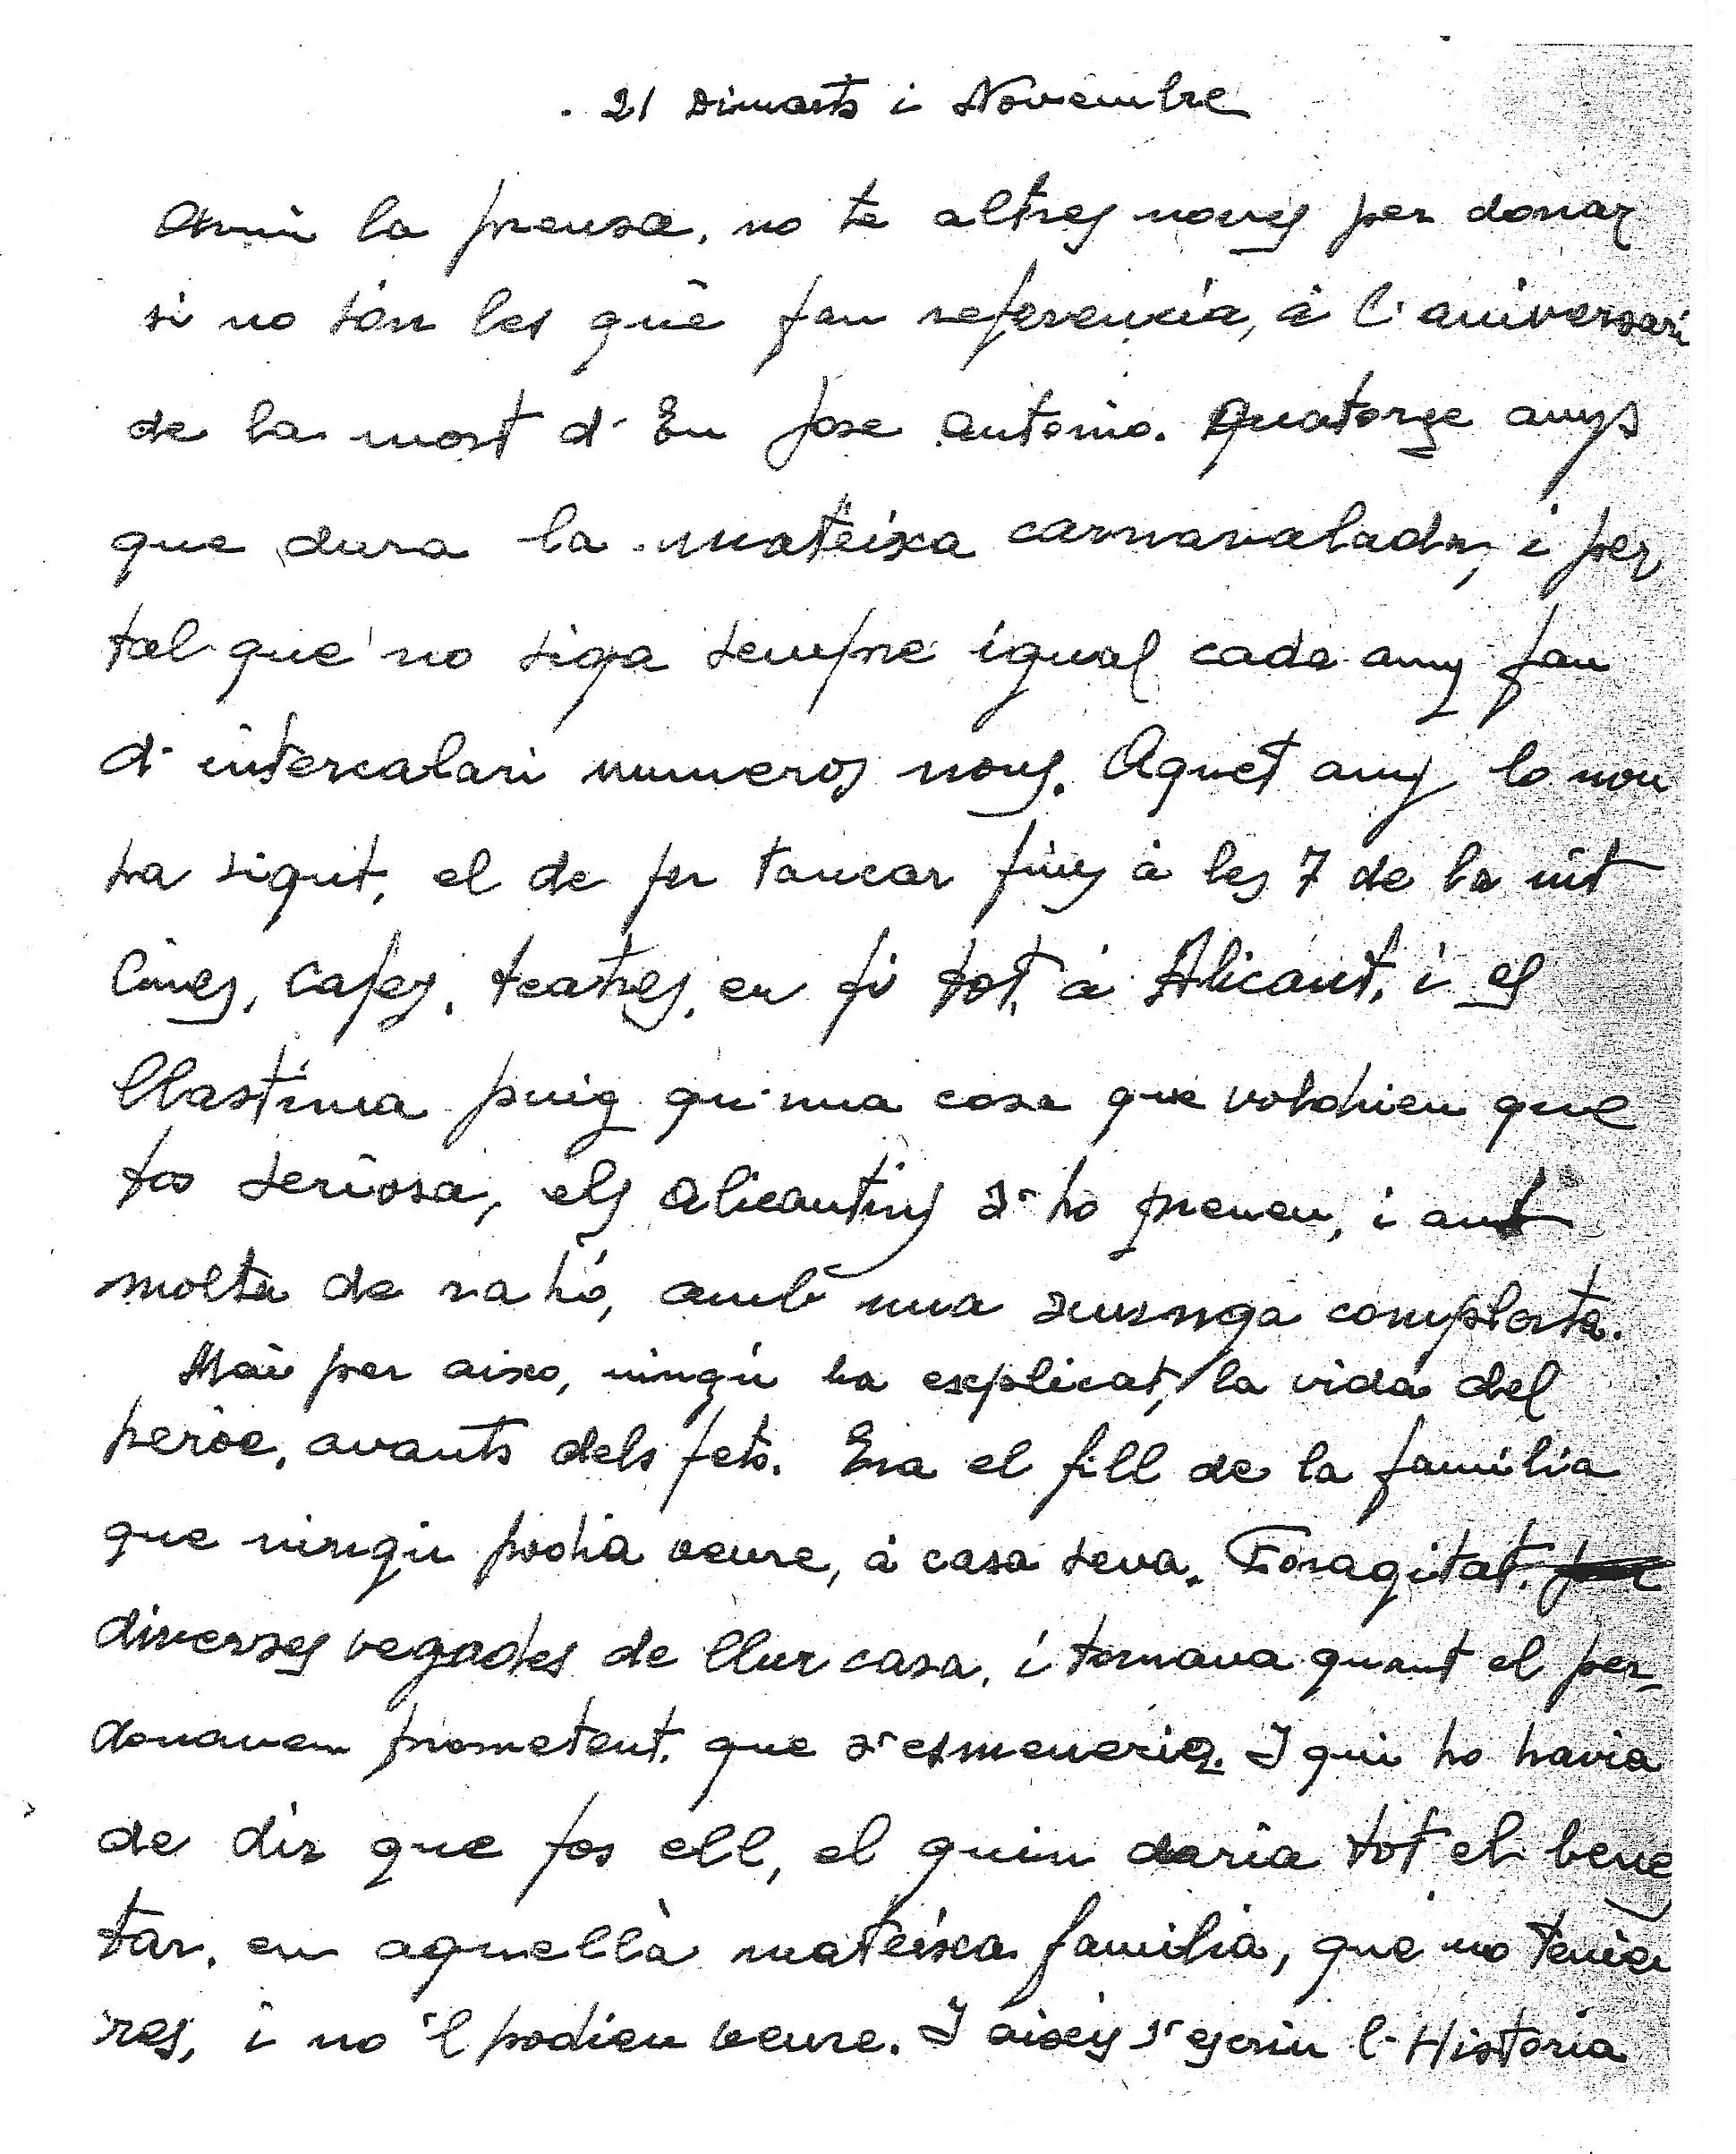 . 21 Dimarts i Novembre
Avui la prensa, no te altres noves per donar
si no són les què fan referencia, à l'aniversari
de la mort d'En Jose Antonio. Quatorze anys
que dura la mateixa carnavalada, i per
tal que no siga sempre igual cada any fan
d'intercalari numeros nous. Aquet any lo nou
ha sigut, el de fer tancar fins à les 7 de la nit
Cines, Cafes, teatres, en fi tot, à Alicant, i es
llastima puig qu'una cosa que voldrien que
fos seriosa, els alicantins s'ho prenen, i amb
molta de rahó, amb una
Mai per aixo, ningú ha explicat, la vida del
heròe, avants dels fets. Era el fill de la familia
que ningú podia veure, à casa seva. Foragitat.
diverses vegades de llur casa, i tornava quant el per-
donaven prometent, que s'esmeneria. I qui ho havia
de dir que fos ell, el quin daria tot el bene
tar, en aquellà mateixa familia, que no tenien
res, i no 'l podien veure. I aixis s'escriu l'Historia